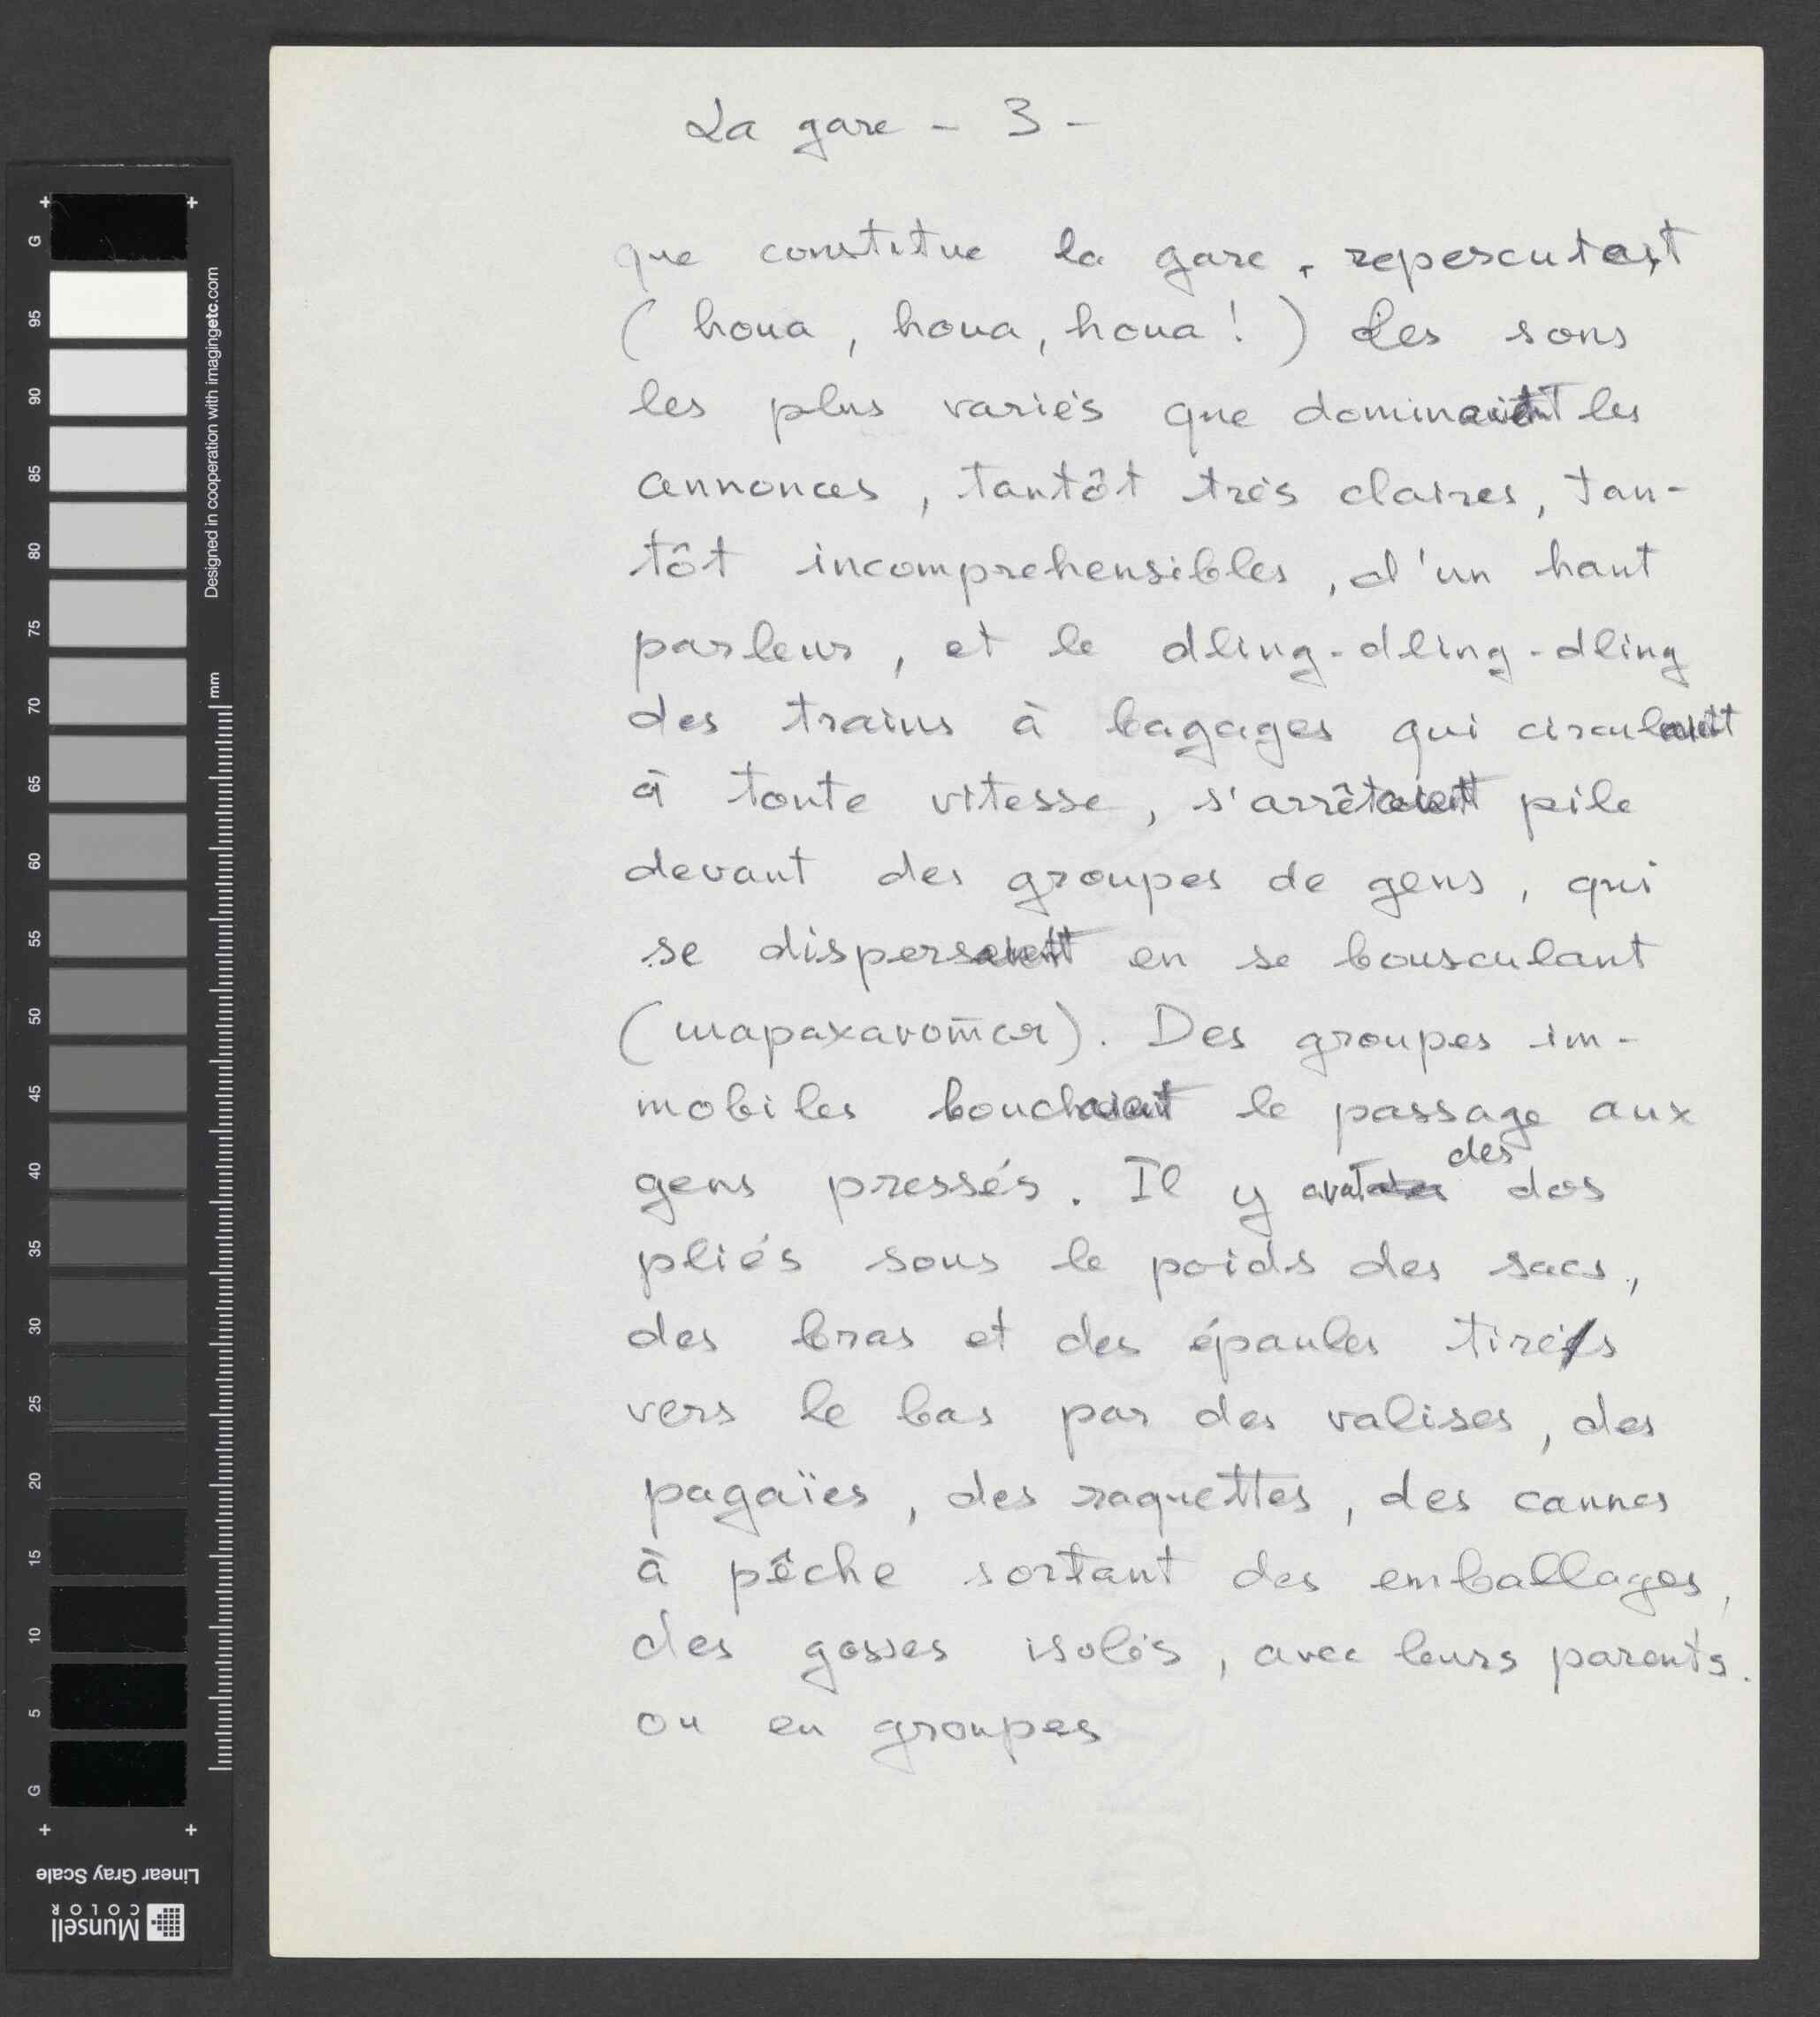 La gare - 3 -
que constitue la gare, repercutait
( houa, houa, houa ! ) les sons
les plus variés que dominaient les
annonces, tantôt très claires, tan-
tôt incomprehensibles, d'un haut
parleur, et le dling-dling-dling
des trains à bagages qui circulaient
à toute vitesse, s'arrêtaient pile
devant des groupes de gens, qui
se dispersaient en se bousculant
Des groupes im-
mobiles bouchaient le passage aux
gens pressés. Il y avait des dos
pliés sous le poids des sacs,
des bras et des épaules tirés
vers le bas par des valises, des
pagaïes, des raquettes, des cannes
à pêche sortant des emballages,
des gosses isolés, avec leurs parents.
ou en groupes
G
95
90
85
80
75
70
65
60
55
50
45
40
35
30
25
20
15
10
5
G
Designed in cooperation with imagingetc.com
mm
Linear Gray Scale
Munsell
COLOR